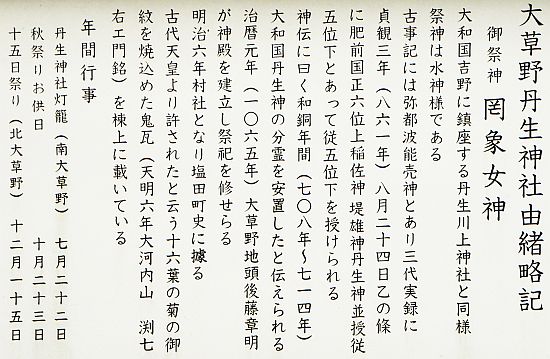 大草野丹生神社由緒略記
御祭神 罔象女神
大和国吉野に鎮座する丹生川上神社と同様
祭神は水神様である
古事記には弥都波能売神とあり三代実録に
貞観三年（八六一年）八月二十四日乙の條
に肥前国正六位上稲佐神 堤雄神丹生神並授従
五位下とあって従五位下を授けられる
神伝に曰く和銅年間（七〇八年～七一四年）
大和国丹生神の分霊を安置したと伝えられる
治暦元年（一〇六五年）大草野地頭後藤章明
が神殿を建立し祭祀を修せらる
明治六年村社となり塩田町史に據る
古代天皇より許されたと云う十六葉の菊の御
紋を焼込めた鬼瓦（天明六年大河内山 渕七
右エ門銘）を棟上に載いている
年間行事
丹生神社灯籠（南大草野） 七月二十二日
秋祭りお供日 十月二十三日
十五日祭り（北大草野） 十二月一十五日